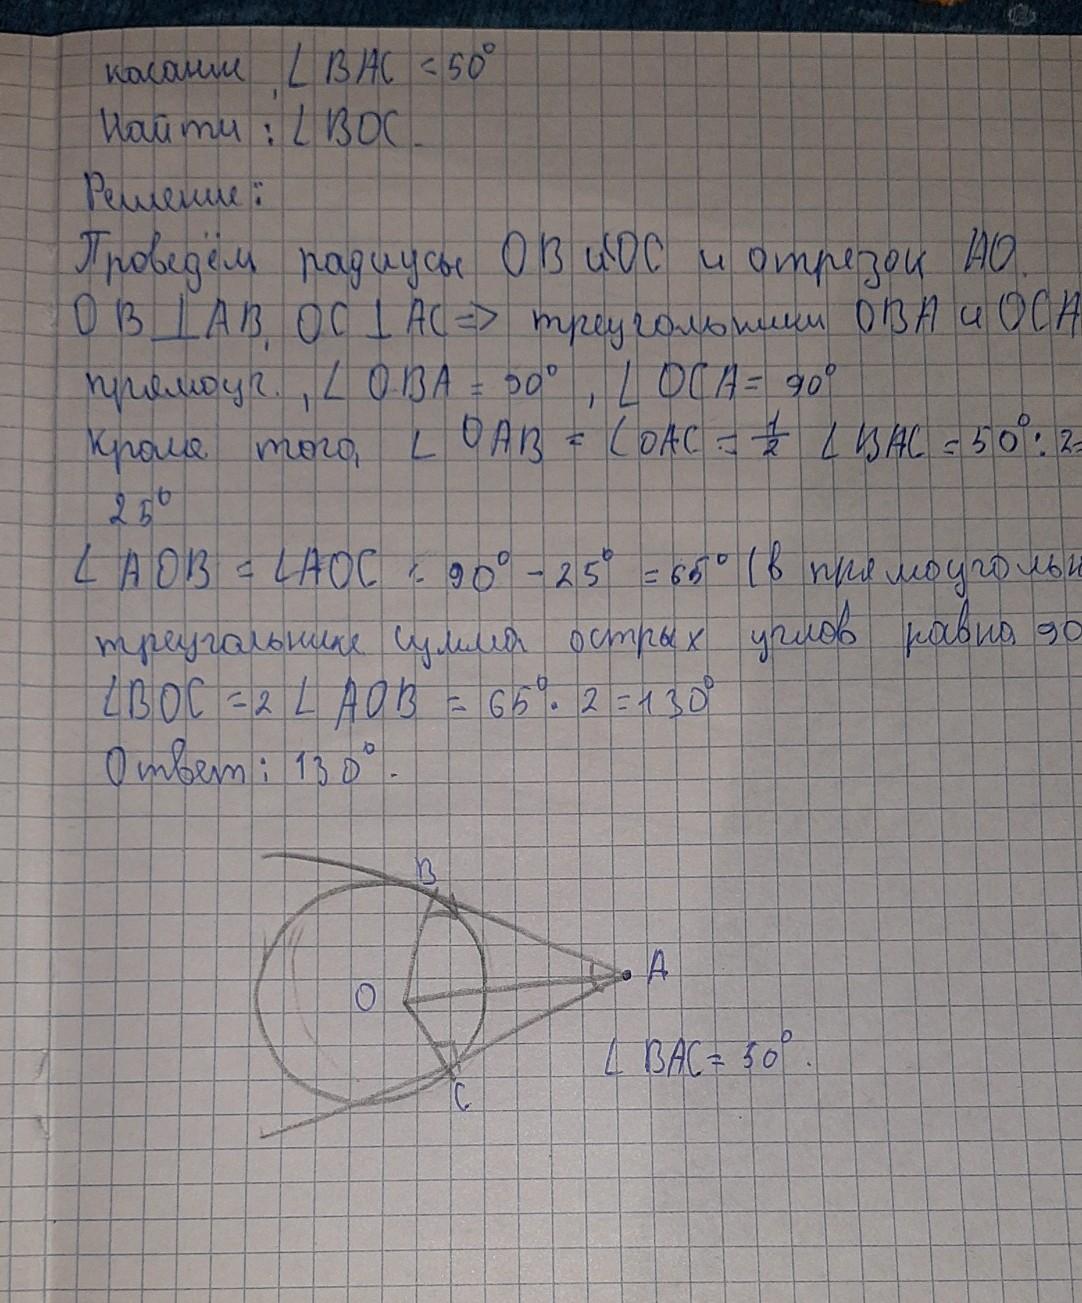 касания, ∠BAC = 50°
Найти: ∠BOC.
Решение:
Проведём радиусы OB и OC и отрезок AO.
OB⊥AB, OC⊥AC => треугольники OBA и OCA
прямоуг., ∠OBA = 90°, ∠OCA = 90°
Кроме того, ∠OAB = ∠OAC = 1/2 ∠BAC = 50° : 2=
25°
∠AOB = ∠AOC = 90° - 25° = 65° (в прямоугольн
треугольнике сумма острых углов равна 90
∠BOC = 2∠AOB = 65° · 2 = 130°
Ответ: 130°.
B
A
O
∠BAC = 50°.
C